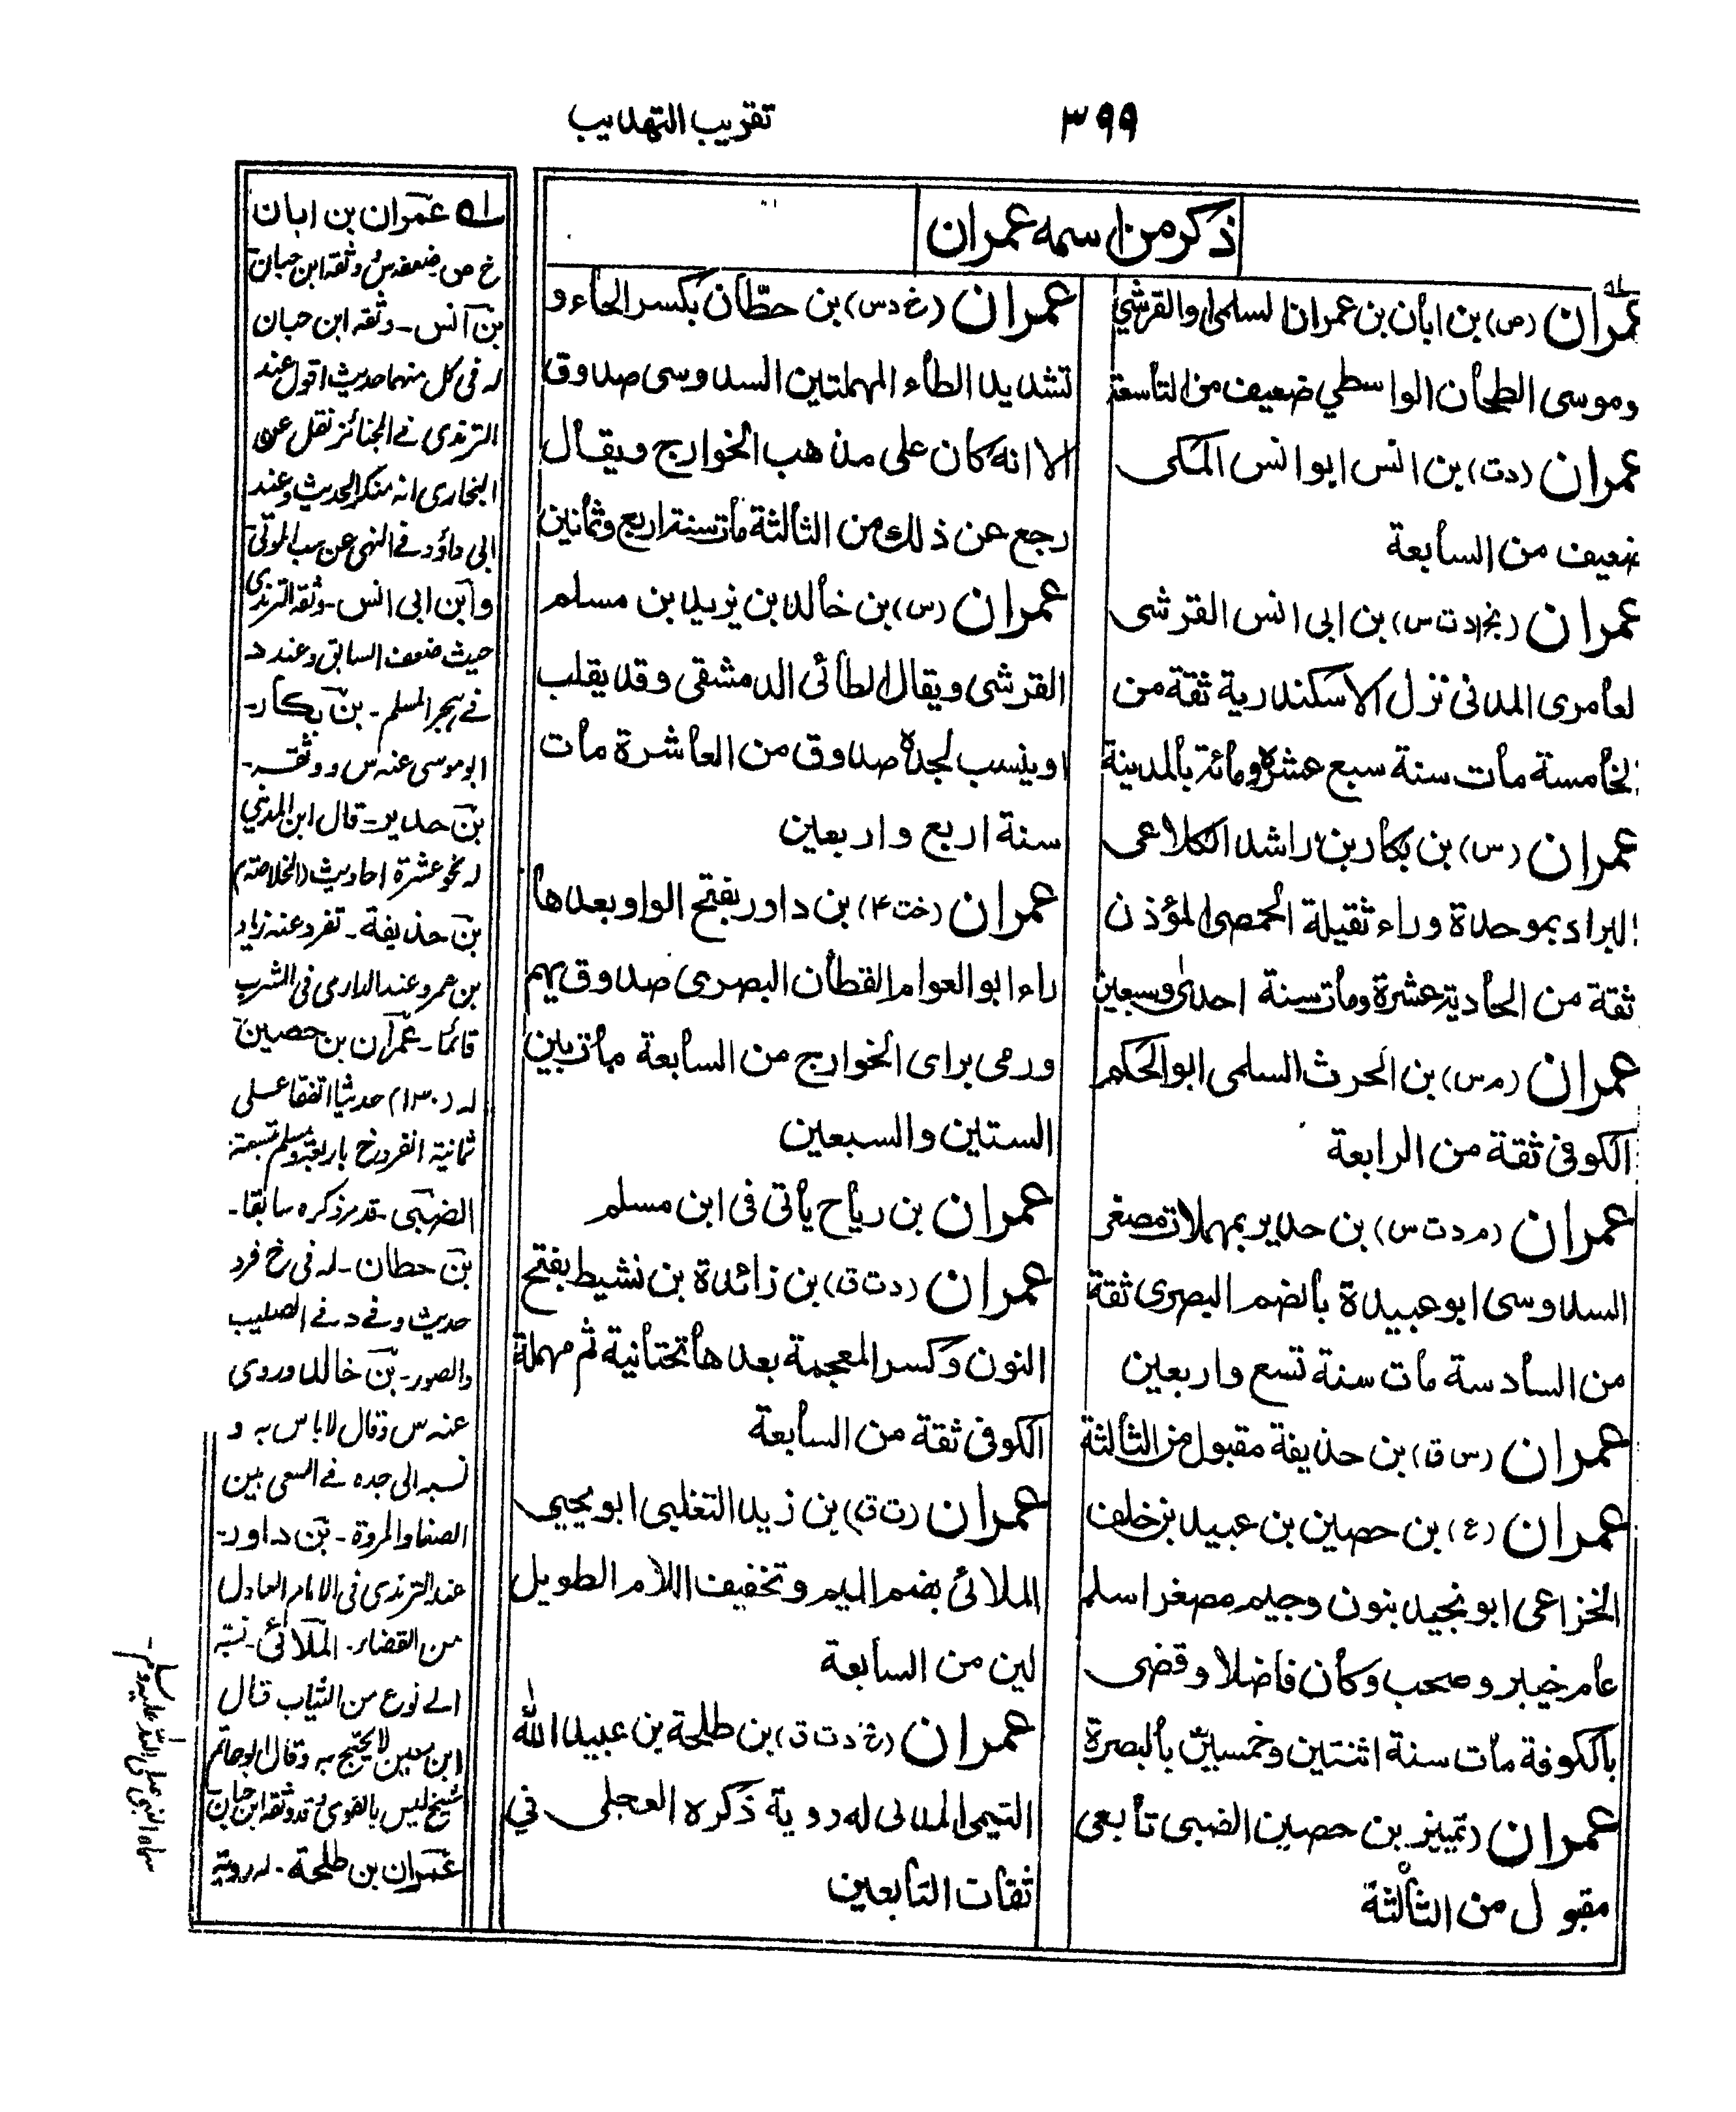 ٣٩٩
تقريب التهذيب
ذكر من اسمه عمران
عمران (ص) بن ابان بن عمران السلمي او القرشي
وموسى الطحان الواسطي ضعيف من التاسعة
عمران (دت) بن انس ابو انس المكى
ضعيف من السابعة
عمران (بخ م د ت س) بن ابى انس القرشى
لعامرى المدنى نزل الاسكندرية ثقة من
لخامسة مات سنة سبع عشرة ومائة بالمدينة
عمران (س) بن بكار بن راشد الكلاعى
البراد بموحدة وراء ثقيلة الحمصى المؤذن
ثقة من الحادية عشرة ومات سنة احدى وسبعين
عمران (م س) بن الحرث السلمى ابو الحكم
الكوفى ثقة من الرابعة
عمران (م د ت س) بن حدير بمهملات مصغر
السدوسى ابو عبيدة بالضم البصرى ثقة
من السادسة مات سنة تسع واربعين
عمران (س ق) بن حذيفة مقبول من الثالثة
عمران (ع) بن حصين بن عبيد بن خلف
الخزاعى ابو نجيد بنون وجيم مصغر اسلم
عام خيبر وصحب وكان فاضلا وقضى
بالكوفة مات سنة اثنتين وخمسين بالبصرة
عمران (تمييز) بن حصين الضبى تابعى
مقبول من الثالثة
عمران (خ د س) بن حطّان بكسر الحاء و
تشديد الطاء المهملتين السدوسى صدوق
الا انه كان على مذهب الخوارج ويقال
رجع عن ذلك من الثالثة مات سنة اربع وثمانين
عمران (س) بن خالد بن يزيد بن مسلم
القرشى ويقال الطائى الدمشقى وقد يقلب
اوينسب لجده صدوق من العاشرة مات
سنة اربع واربعين
عمران (خت ۴) بن داور بفتح الواو بعدها
راء ابو العوام القطان البصرى صدوق يهم
ورمى براى الخوارج من السابعة مات بين
الستين والسبعين
عمران بن رياح يأتى فى ابن مسلم
عمران (د ت ق) بن زائدة بن نشيط بفتح
النون وكسر المعجمة بعدها تحتانية ثم مهملة
الكوفى ثقة من السابعة
عمران (ت ق) بن زيد التغلبى ابو يحيى
الملائى بضم الميم وتخفيف اللام الطويل
لين من السابعة
عمران (بخ د ت ق) بن طلحة بن عبيد الله
التيمى المدنى له روية ذكره العجلى في
ثقات التابعين
له عمران بن ابان
خ ص ضعفه س وثقه ابن حبان
بن انس - وثقه ابن حبان
له فى كل منهما حديث اقول عند
الترمذى فے الجنائز نقل عن
البخارى انه منكر الحديث وعند
ابى داؤد فے النهى عن سب الموتى
وابن ابى انس - وثقه الترمذى
حيث ضعف السابق وعند د
فے ہجر المسلم - بن بكار -
ابو موسى عنه س ووثقه -
بن حدير - قال ابن المدينى
له نحو عشرة احاديث (الخلاصة)
بن حذيفة - تفرد عنه زياد
بن عمرو عند الدارمى فى الشرب
قائما - عمران بن حصين
له (١٣٠) حديثا اتفقا على
ثمانية انفرد خ باربعة ومسلم بتسعة
الضبى - قد مر ذكره سابقا -
بن حطان - له فى خ فرد
حديث وفے د فے الصليب
والصور - بن خالد وروى
عنه س وقال لا باس به و
نسبه الى جده فے السعى بين
الصفا والمروة - بن داور -
عند الترمذى فى الامام العادل
من القضاء - الملائى - نسبة
الے نوع من الثياب قال
ابن معين لا يحتج به وقال ابو حاتم
شيخ ليس بالقوى وقد وثقه ابن حبان
عمران بن طلحة - له روية
سماه النبى صلى الله عليه وسلم -